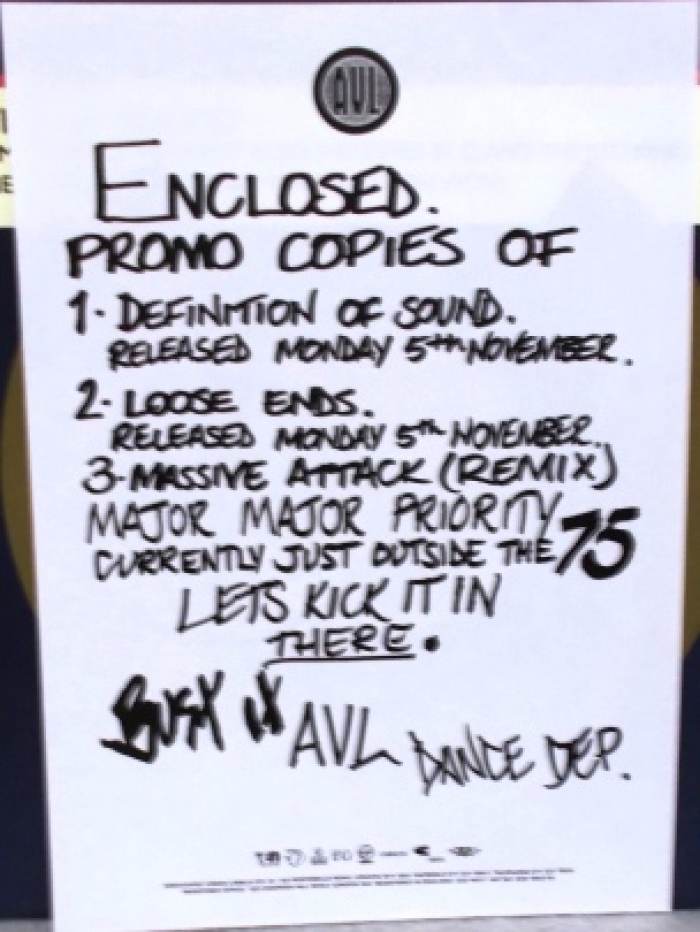 AVL
ENCLOSED.
PROMO COPIES OF
1. DEFINITION OF SOUND.
RELEASED MONDAY 5th NOVEMBER.
2. LOOSE ENDS.
RELEASED MONDAY 5th NOVEMBER.
3. MASSIVE ATTACK (REMIX)
MAJOR MAJOR PRIORITY
CURRENTLY JUST OUTSIDE THE 75
LETS KICK IT IN
THERE.
AVL DANCE DEP.